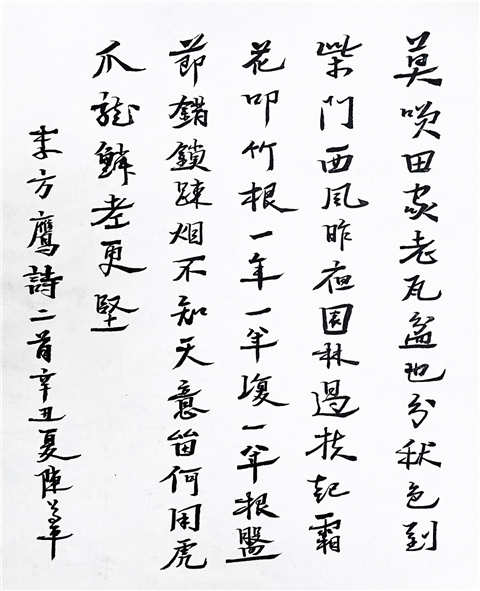 莫咲田家老瓦盆也分秋色到
柴门西风昨夜园林過扶起霜
花叩竹根一年一年復一年根盤
節錯鎖疎烟不知天意留何用虎
爪龍鱗老更堅
李方鷹詩二首辛丑夏陳